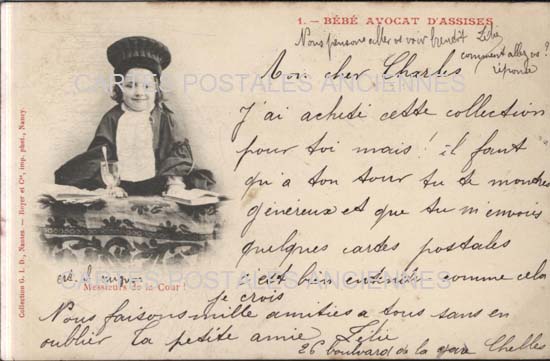 1. — BÉBÉ AVOCAT D'ASSISES
Nous pensons aller vs voir bientôt Lélie
comment allez vs ?
réponse
Mon cher Charles
CARTES POSTALES ANCIENNES
J'ai acheté cette collection
pour toi mais ! il faut
qu'à ton tour tu te montres
généreux et que tu m'envoies
quelques cartes postales
c'est bien entendu comme cela
je crois
est il mignon
Messieurs de la Cour !
CARTES POSTALES ANCIENNES
Nous faisons mille amitiés a tous sans en
oublier Ta petite amie Lélie
26 boulevard de la gare Chelles
Collection G. I. D., Nantes. — Royer et Cie, imp. phot., Nancy.